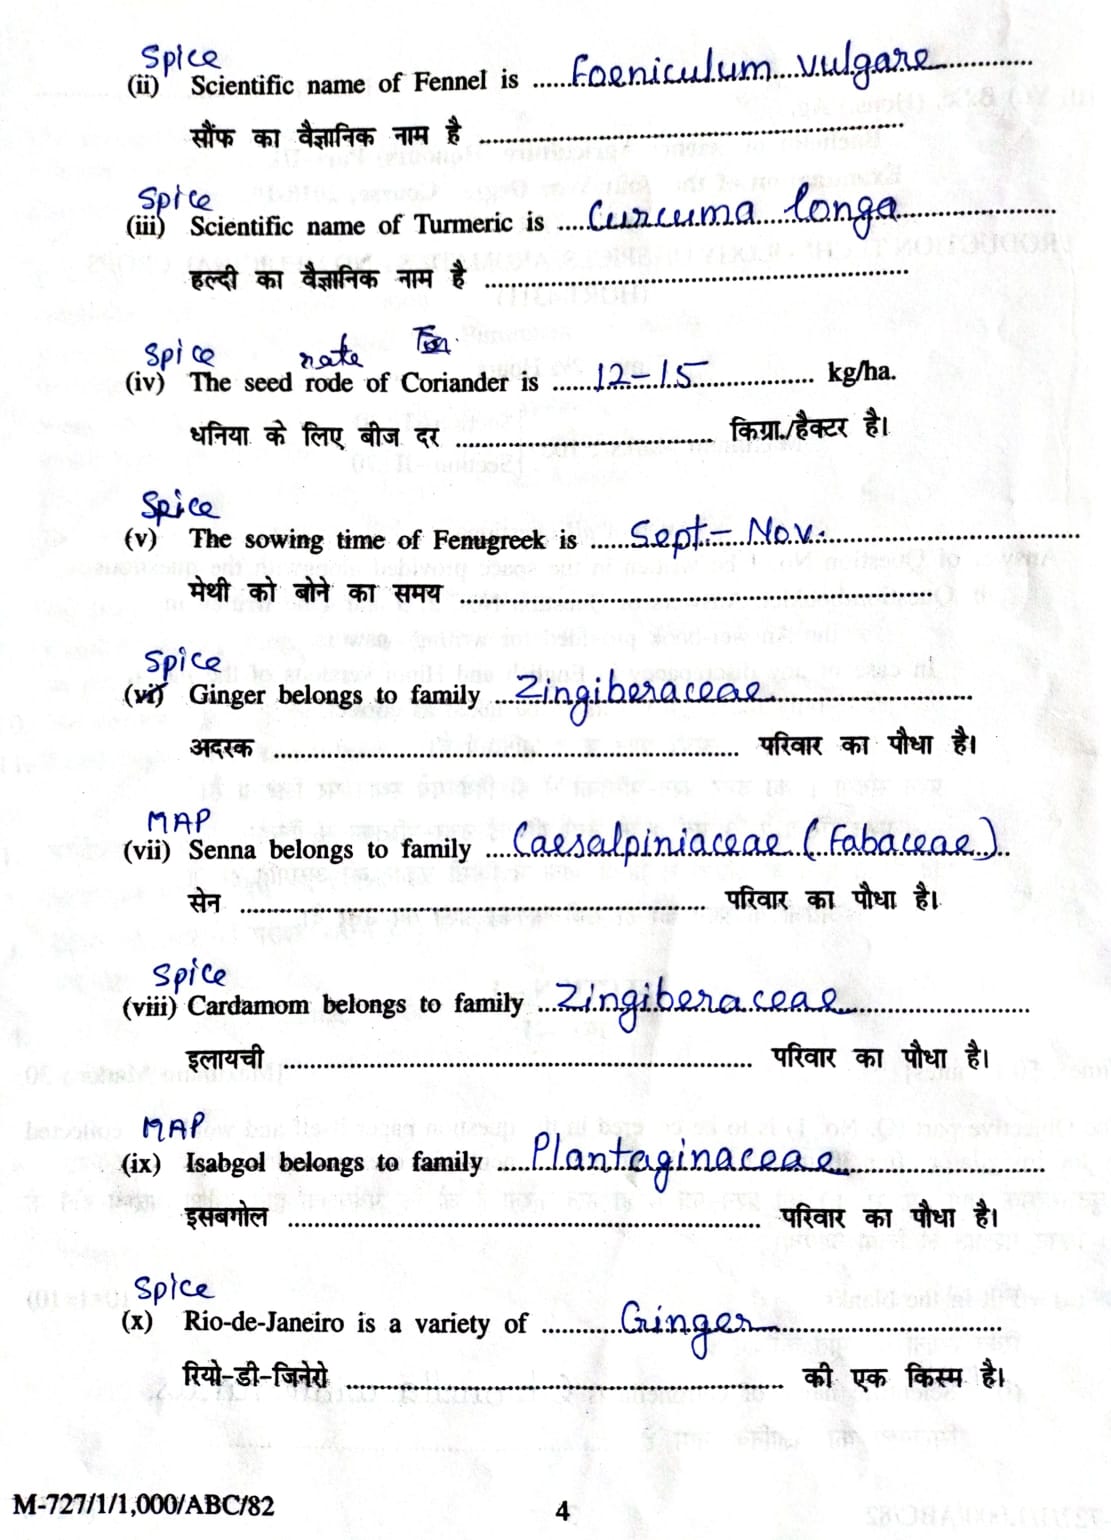 Spice
(ii) Scientific name of Fennel is ......Foeniculum vulgare......
सौंफ का वैज्ञानिक नाम है ......
Spice
(iii) Scientific name of Turmeric is ......Curcuma longa......
हल्दी का वैज्ञानिक नाम है ......
Spice rate For
(iv) The seed rode of Coriander is ......12-15...... kg/ha.
धनिया के लिए बीज दर ...... किग्रा./हैक्टर है।
Spice
(v) The sowing time of Fenugreek is ......Sept-Nov.......
मेथी को बोने का समय ......
Spice
(vi) Ginger belongs to family ......Zingiberaceae......
अदरक ...... परिवार का पौधा है।
MAP
(vii) Senna belongs to family ......Caesalpiniaceae (Fabaceae)..
सेन ...... परिवार का पौधा है।
Spice
(viii) Cardamom belongs to family ......Zingiberaceae......
इलायची ...... परिवार का पौधा है।
MAP
(ix) Isabgol belongs to family ......Plantaginaceae......
इसबगोल ...... परिवार का पौधा है।
Spice
(x) Rio-de-Janeiro is a variety of ......Ginger......
रियो-डी-जिनेरो ...... की एक किस्म है।
M-727/1/1,000/ABC/82 4